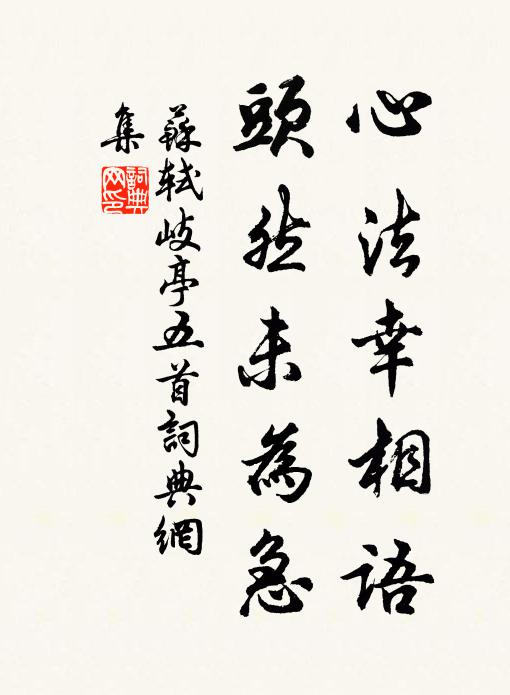 心法幸相語
頭然未為急
蘇軾岐亭五首詞典網
集
詞典網印